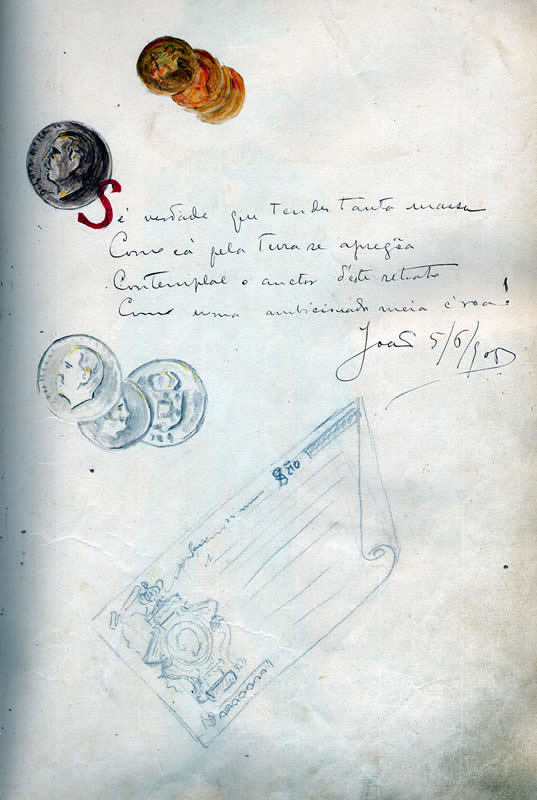 Sé verdade que tendes tanta massa
Como cá pela terra se apregôa
Contemplae o auctor d'este retrato
Como uma ambicionada meia c'rôa!
João 5/6/908
São